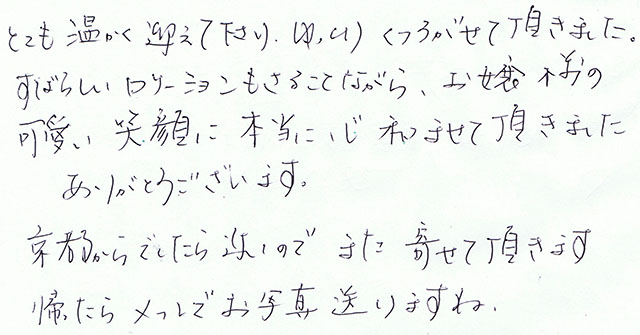 とても温かく迎えて下さり、ゆっくりくつろがせて頂きました。
すばらしいロケーションもさることながら、お嬢様の
可愛い笑顔に本当に心和ませて頂きました
ありがとうございます。
京都からでしたら近いので また寄せて頂きます
帰ったらメールでお写真送りますね。